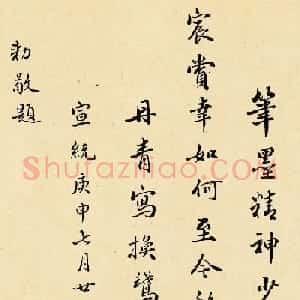 筆墨精神少
宸賞幸如何至今
丹青寫換鵞
宣統庚申七月廿
勅敬題
Shufaziliao.com